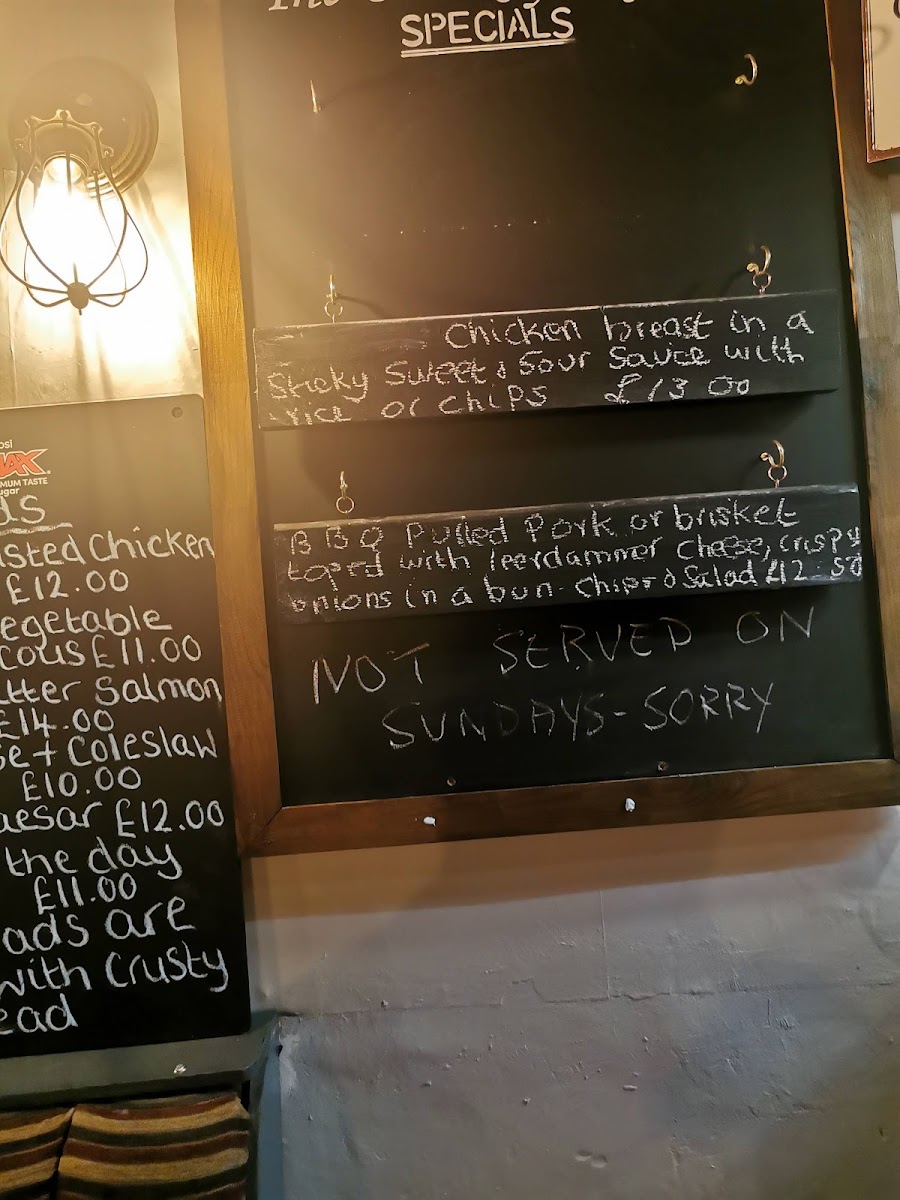 The
SPECIALS
Chicken breast in a
Sticky Sweet & Sour Sauce with
rice or chips £13 00
BBQ Pulled Pork or brisket
toped with leerdammer cheese, crispy
onions in a bun - Chips & Salad £12.50
NOT SERVED ON
SUNDAYS-SORRY
psi
MAX
MUM TASTE
ugar
ds
sted chicken
£12.00
egetable
cous £11.00
tter Salmon
£14.00
se + Coleslaw
£10.00
aesar £12.00
the day
£11.00
ads are
with crusty
ead